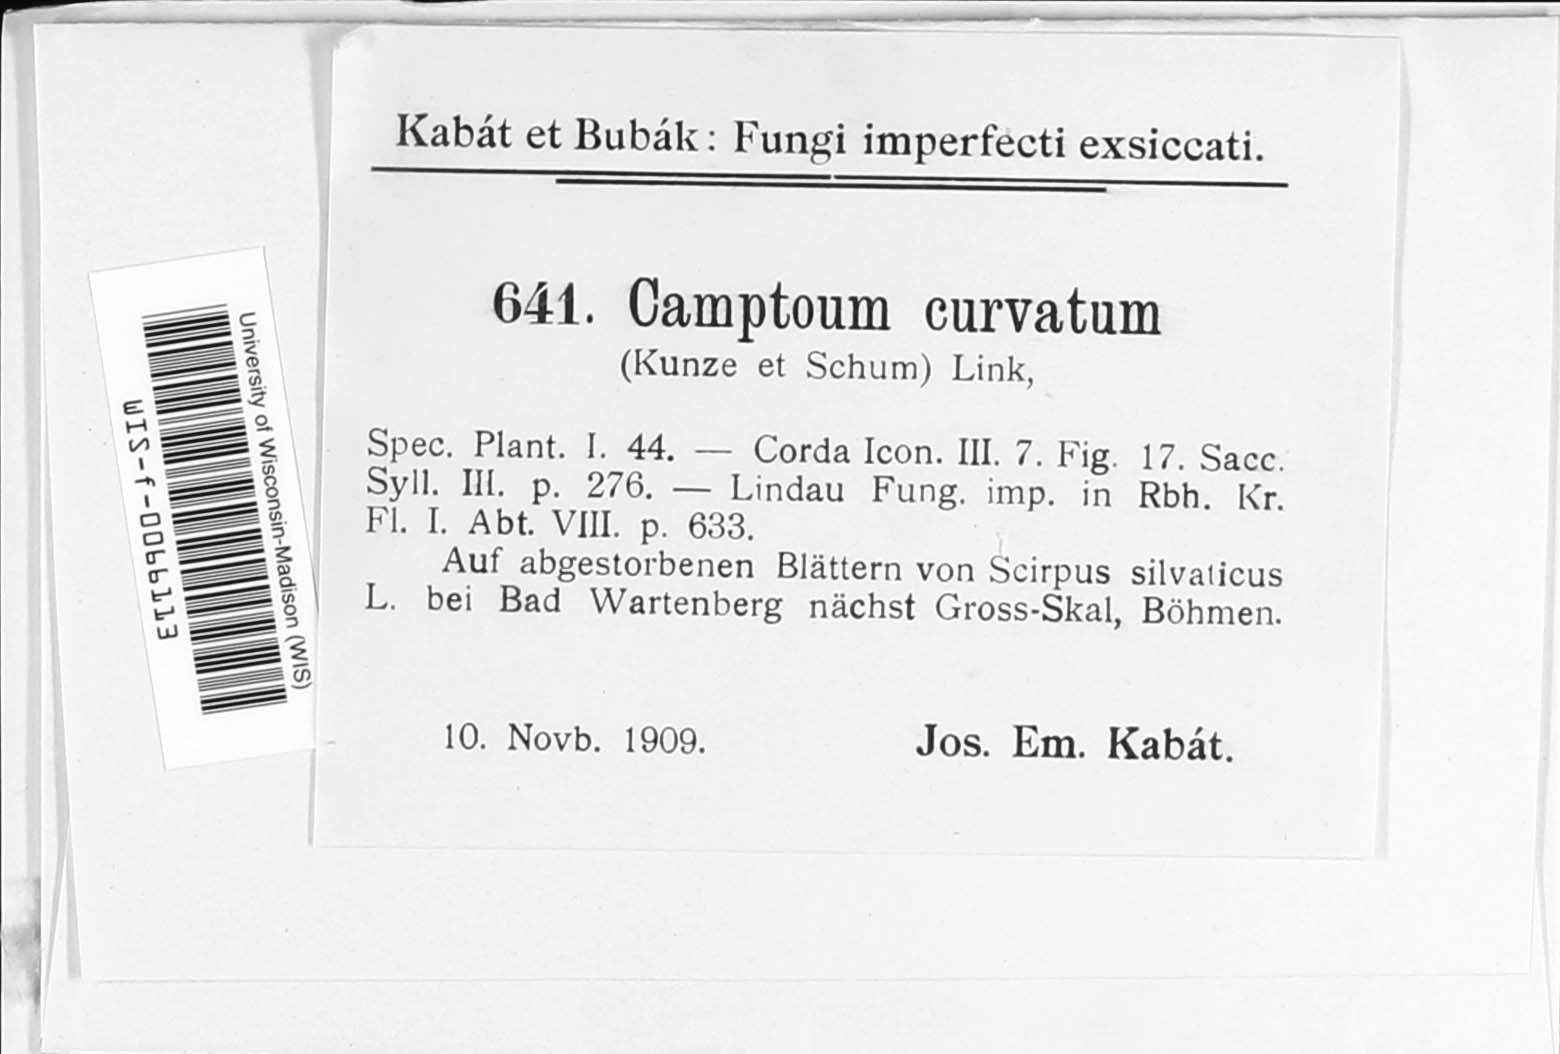 Kabát et Bubák: Fungi imperfecti exsiccati.
641. Camptoum curvatum
(Kunze et Schum) Link,
Spec. Plant. I. 44. — Corda Icon. III. 7. Fig. 17. Sacc.
Syll. III. p. 276. — Lindau Fung. imp. in Rbh. Kr.
Fl. I. Abt. VIII. p. 633.
Auf abgestorbenen Blättern von Scirpus silvaticus
L. bei Bad Wartenberg nächst Gross-Skal, Böhmen.
10. Novb. 1909. Jos. Em. Kabát.
University of Wisconsin-Madison (WIS)
WIS-f-0066113